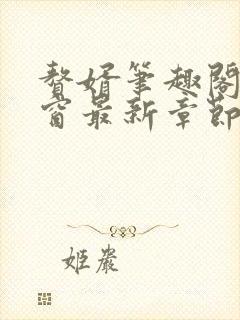 贅婿筆趣閣
窗最新章節
姬嚴